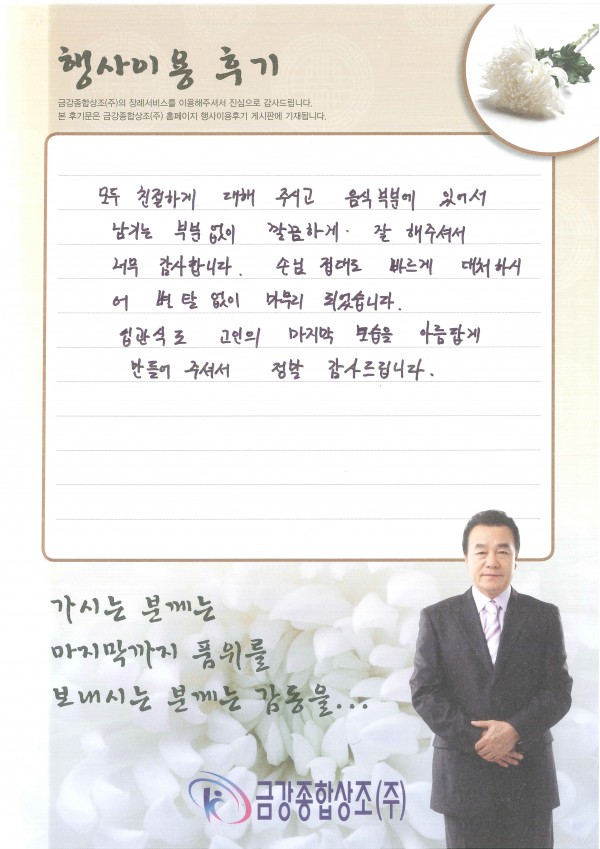 행사이용 후기
금강종합상조(주)의 장례서비스를 이용해주셔서 진심으로 감사드립니다.
본 후기문은 금강종합상조(주) 홈페이지 행사이용후기 게시판에 기재됩니다.
모두 친절하게 대해 주시고 음식부분에 있어서
남기는 부분없이 깔끔하게 잘 해주셔서
너무 감사합니다. 손님 접대도 바르게 대처하시
어 변탈 없이 마무리 되었습니다.
입관식도 고인의 마지막 모습을 아름답게
만들어 주셔서 정말 감사드립니다.
가시는 분께는
마지막까지 품위를
보내시는 분께는 감동을...
금강종합상조(주)